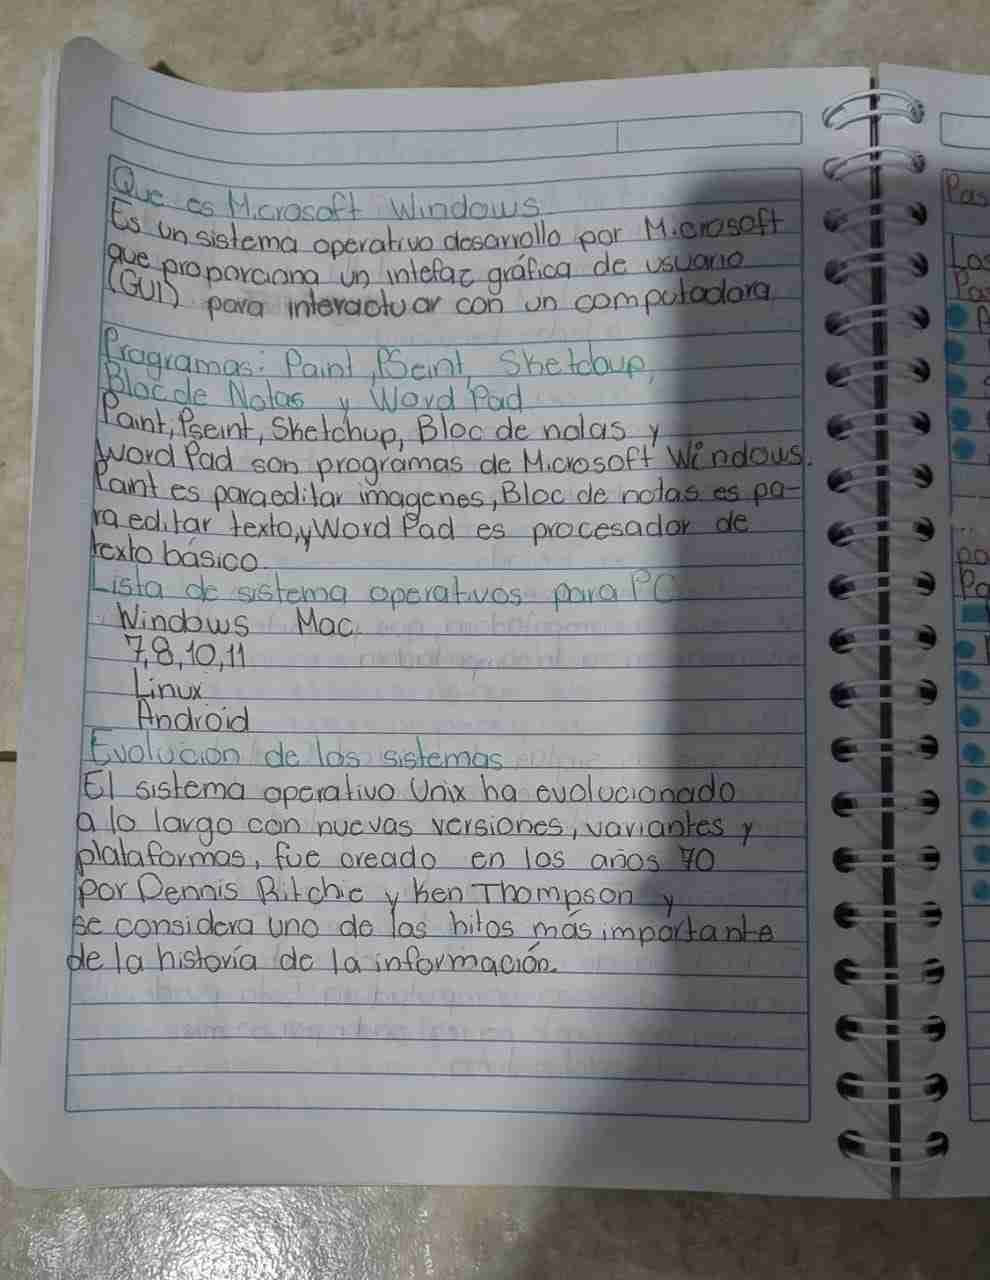 Que es Microsoft Windows
Es un sistema operativo desarrollo por Microsoft
que proporciona un intefaz gráfica de usuario
(GUI) para interactuar con un computadora
Programas: Paint, PSeint, Sketchup,
Bloc de Notas y Word Pad
Paint, Pseint, Sketchup, Bloc de notas y
Word Pad son programas de Microsoft Windows.
Paint es para editar imagenes, Bloc de notas es pa-
ra editar texto, y Word Pad es procesador de
texto básico.
Lista de sistema operativos para PC
Windows Mac
7, 8, 10, 11
Linux
Android
Evolucion de los sistemas
El sistema operativo Unix ha evolucionado
a lo largo con nuevas versiones, variantes y
plataformas, fue creado en los años 70
por Dennis Ritchie y Ken Thompson y
se considera uno de los hitos más importante
de la historía de la información.
Pas
Las
Pas